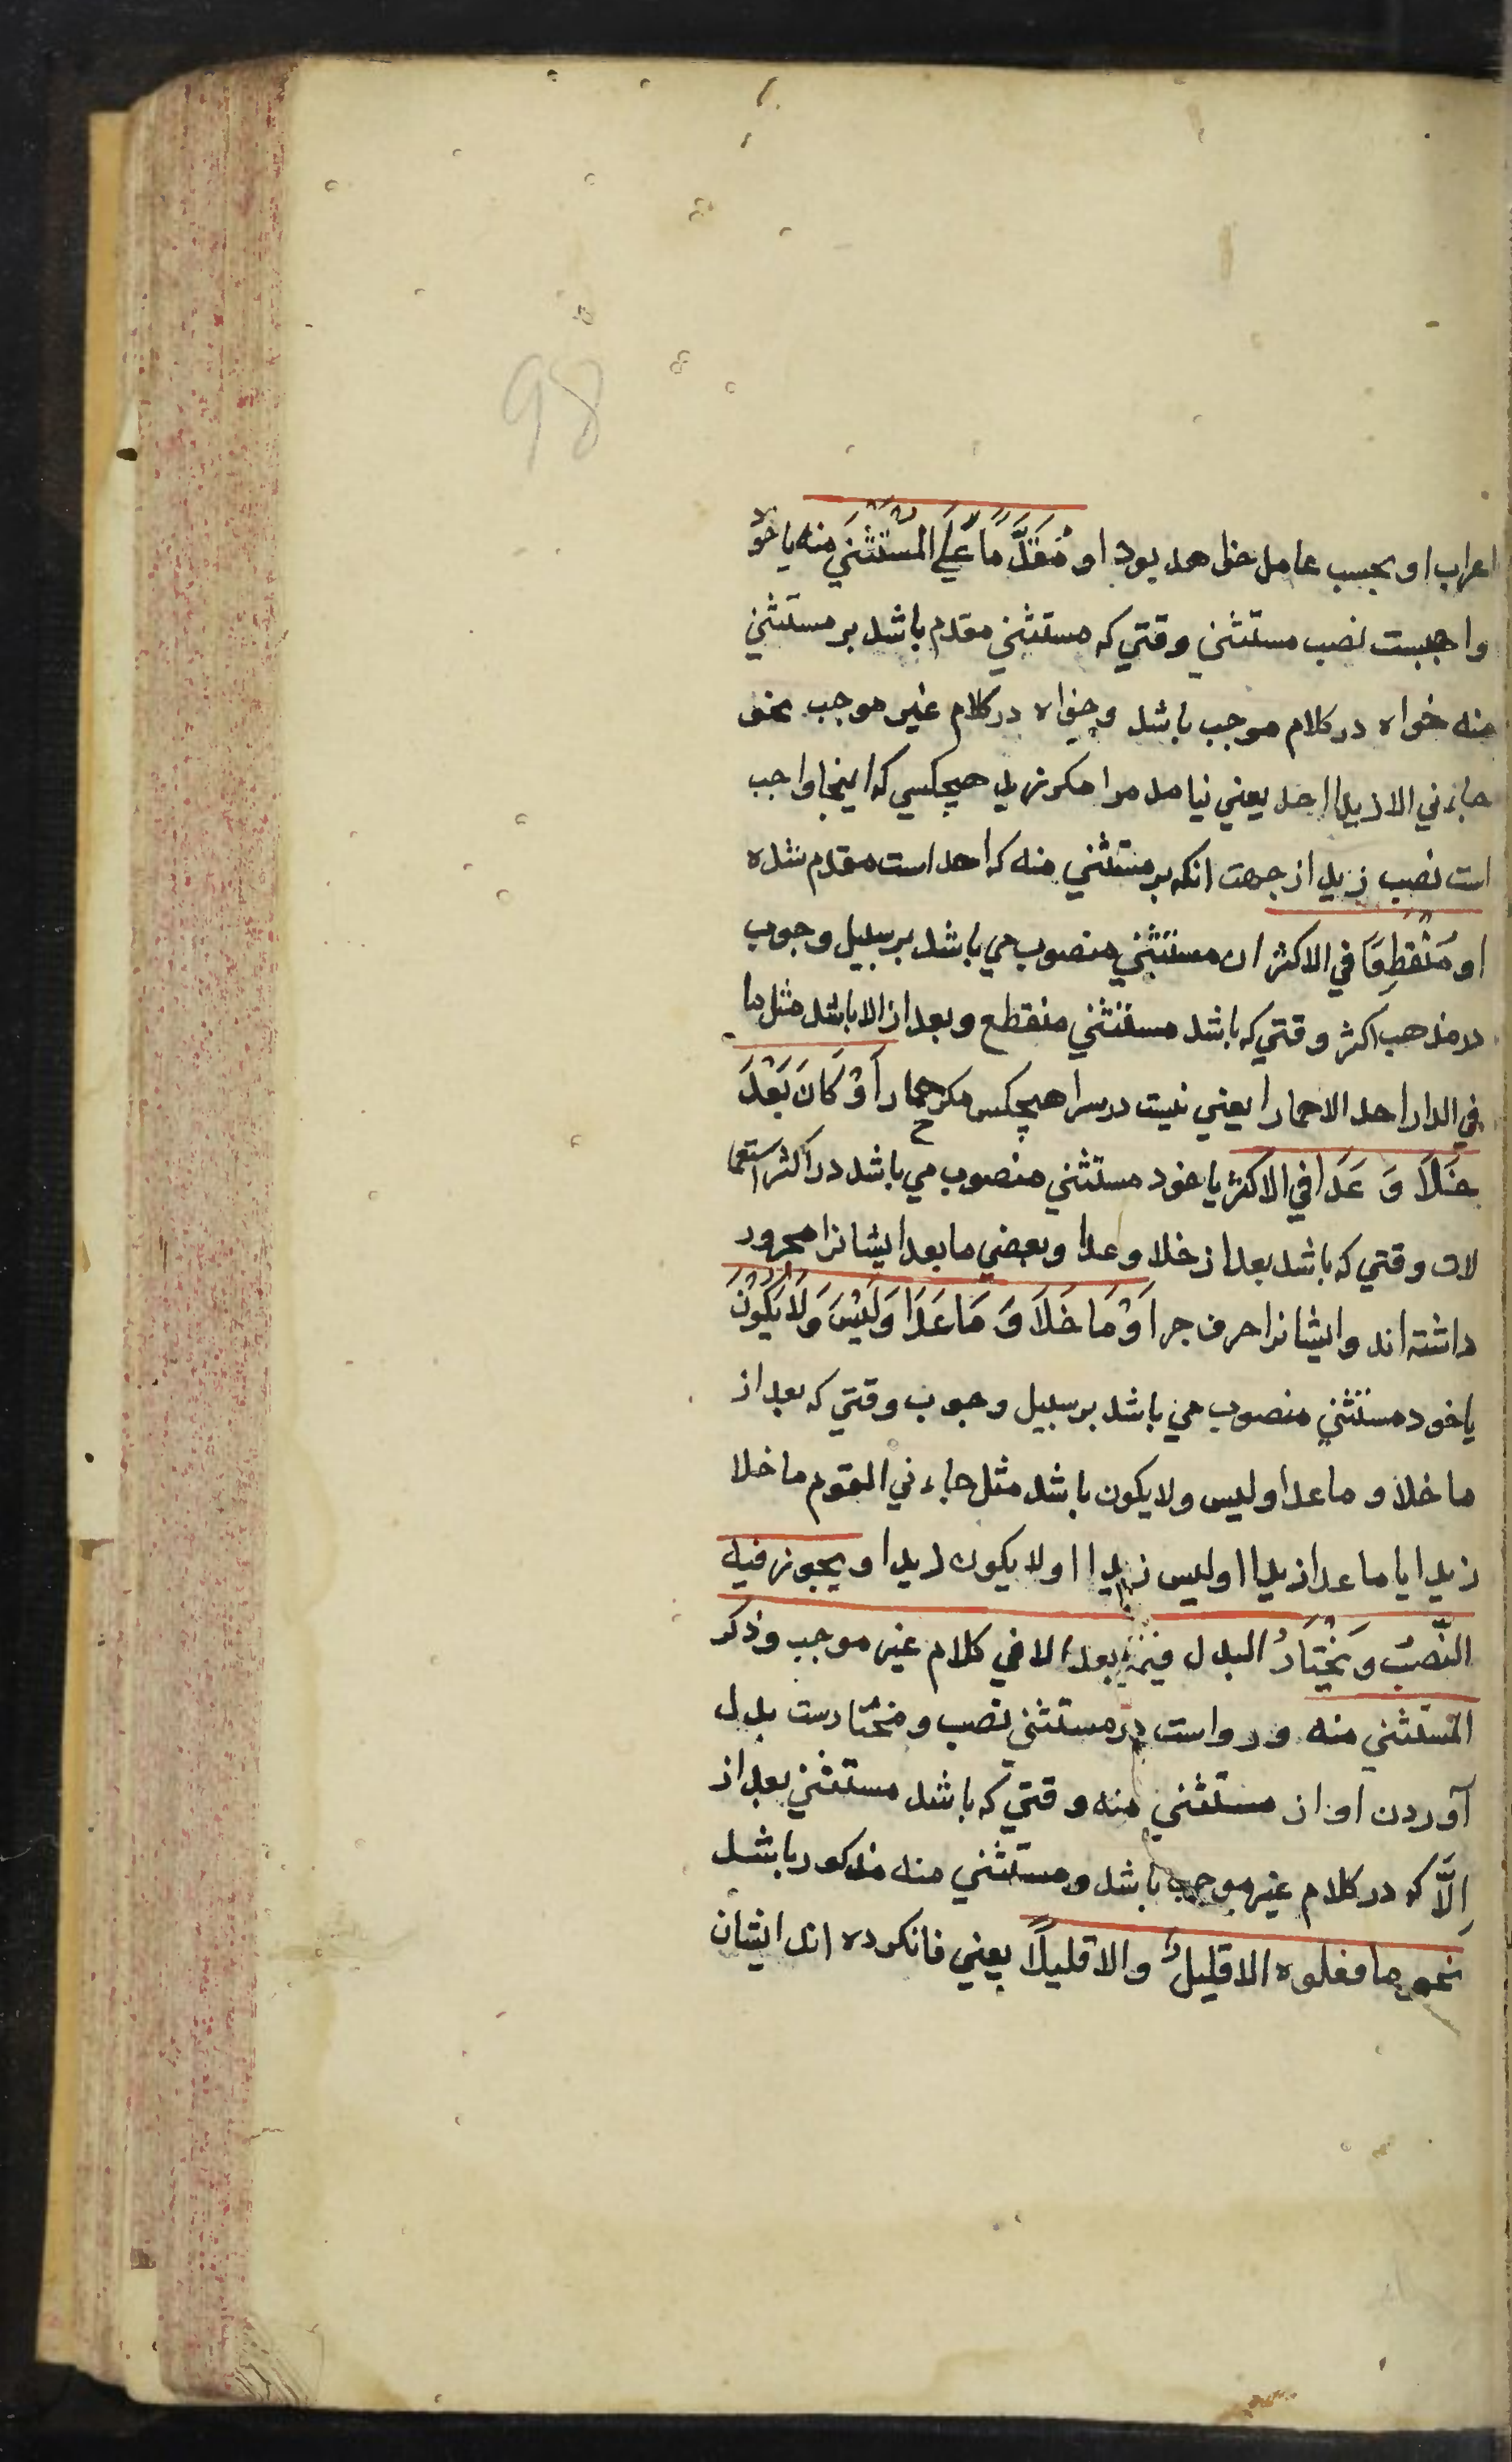 98
اعراب او بحسب عامل خواهد بود او مُقَدَّمًا عَلَي المُسْتَثْنَي منه يا خود
واجبست نصب مستثني وقتي كه مستثني مقدم باشد بر مستثني
منه خواه در كلام موجب باشد وخواه در كلام غير موجب نحو
جاءني الا زيدا احد يعني نيامد مرا مكر زيد هيچكسي كه اينجا واجب
است نصب زيد از جهت انكه بر مستثني منه كه احد است مقدم شده
او مُنْقَطِعًا في الاكثر ان مستثني منصوب مي باشد بر سبيل وجوب
در مذهب اكثر وقتي كه باشد مستثني منقطع وبعد از الا باشد مثل ما
في الدار احد الا حمارا يعني نيست در سرا هيچكس مكر حمار أَوْ كَانَ بَعْدَ
خَلَا وَ عَدَا في الاكثر يا خود مستثني منصوب مي باشد در اكثر استعما
لات وقتي كه باشد بعد از خلا وعدا وبعضي ما بعد ايشانرا مجرور
داشته اند وايشانرا حرف جر أَوْ مَا خَلَا وَ مَا عَدَا وَلَيْسَ وَلَا يَكُوْنُ
يا خود مستثني منصوب مي باشد بر سبيل وجوب وقتي كه بعد از
ما خلا و ما عدا وليس ولا يكون باشد مثل جاءني القوم ما خلا
زيدا يا ما عدا زيدا اوليس زيدا اولا يكون زيدا ويجوز فيه
النَّصبُ وَيُخْتَارُ البدل فيما بعد الا في كلام غير موجب وذكر
المستثني منه ورواست در مستثني نصب ومختارست بدل
آوردن او از مستثني منه وقتي كه باشد مستثني بعد از
اِلَّا كه در كلام غير موجب باشد ومستثني منه مذكور باشد
نحو ما فعلوه الا قليلٌ والا قليلًا يعني فانكرده اند ايشان